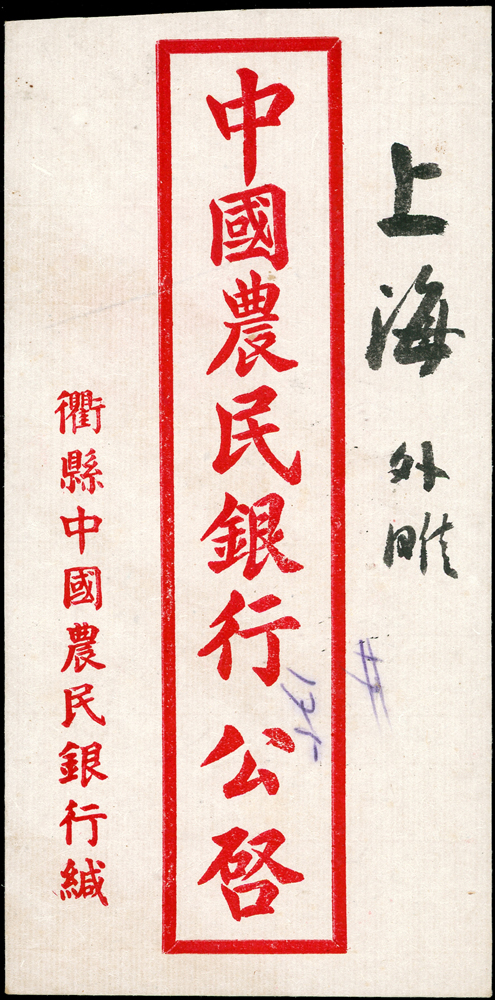 上海 外
中國農民銀行 公啓
衢縣中國農民銀行緘